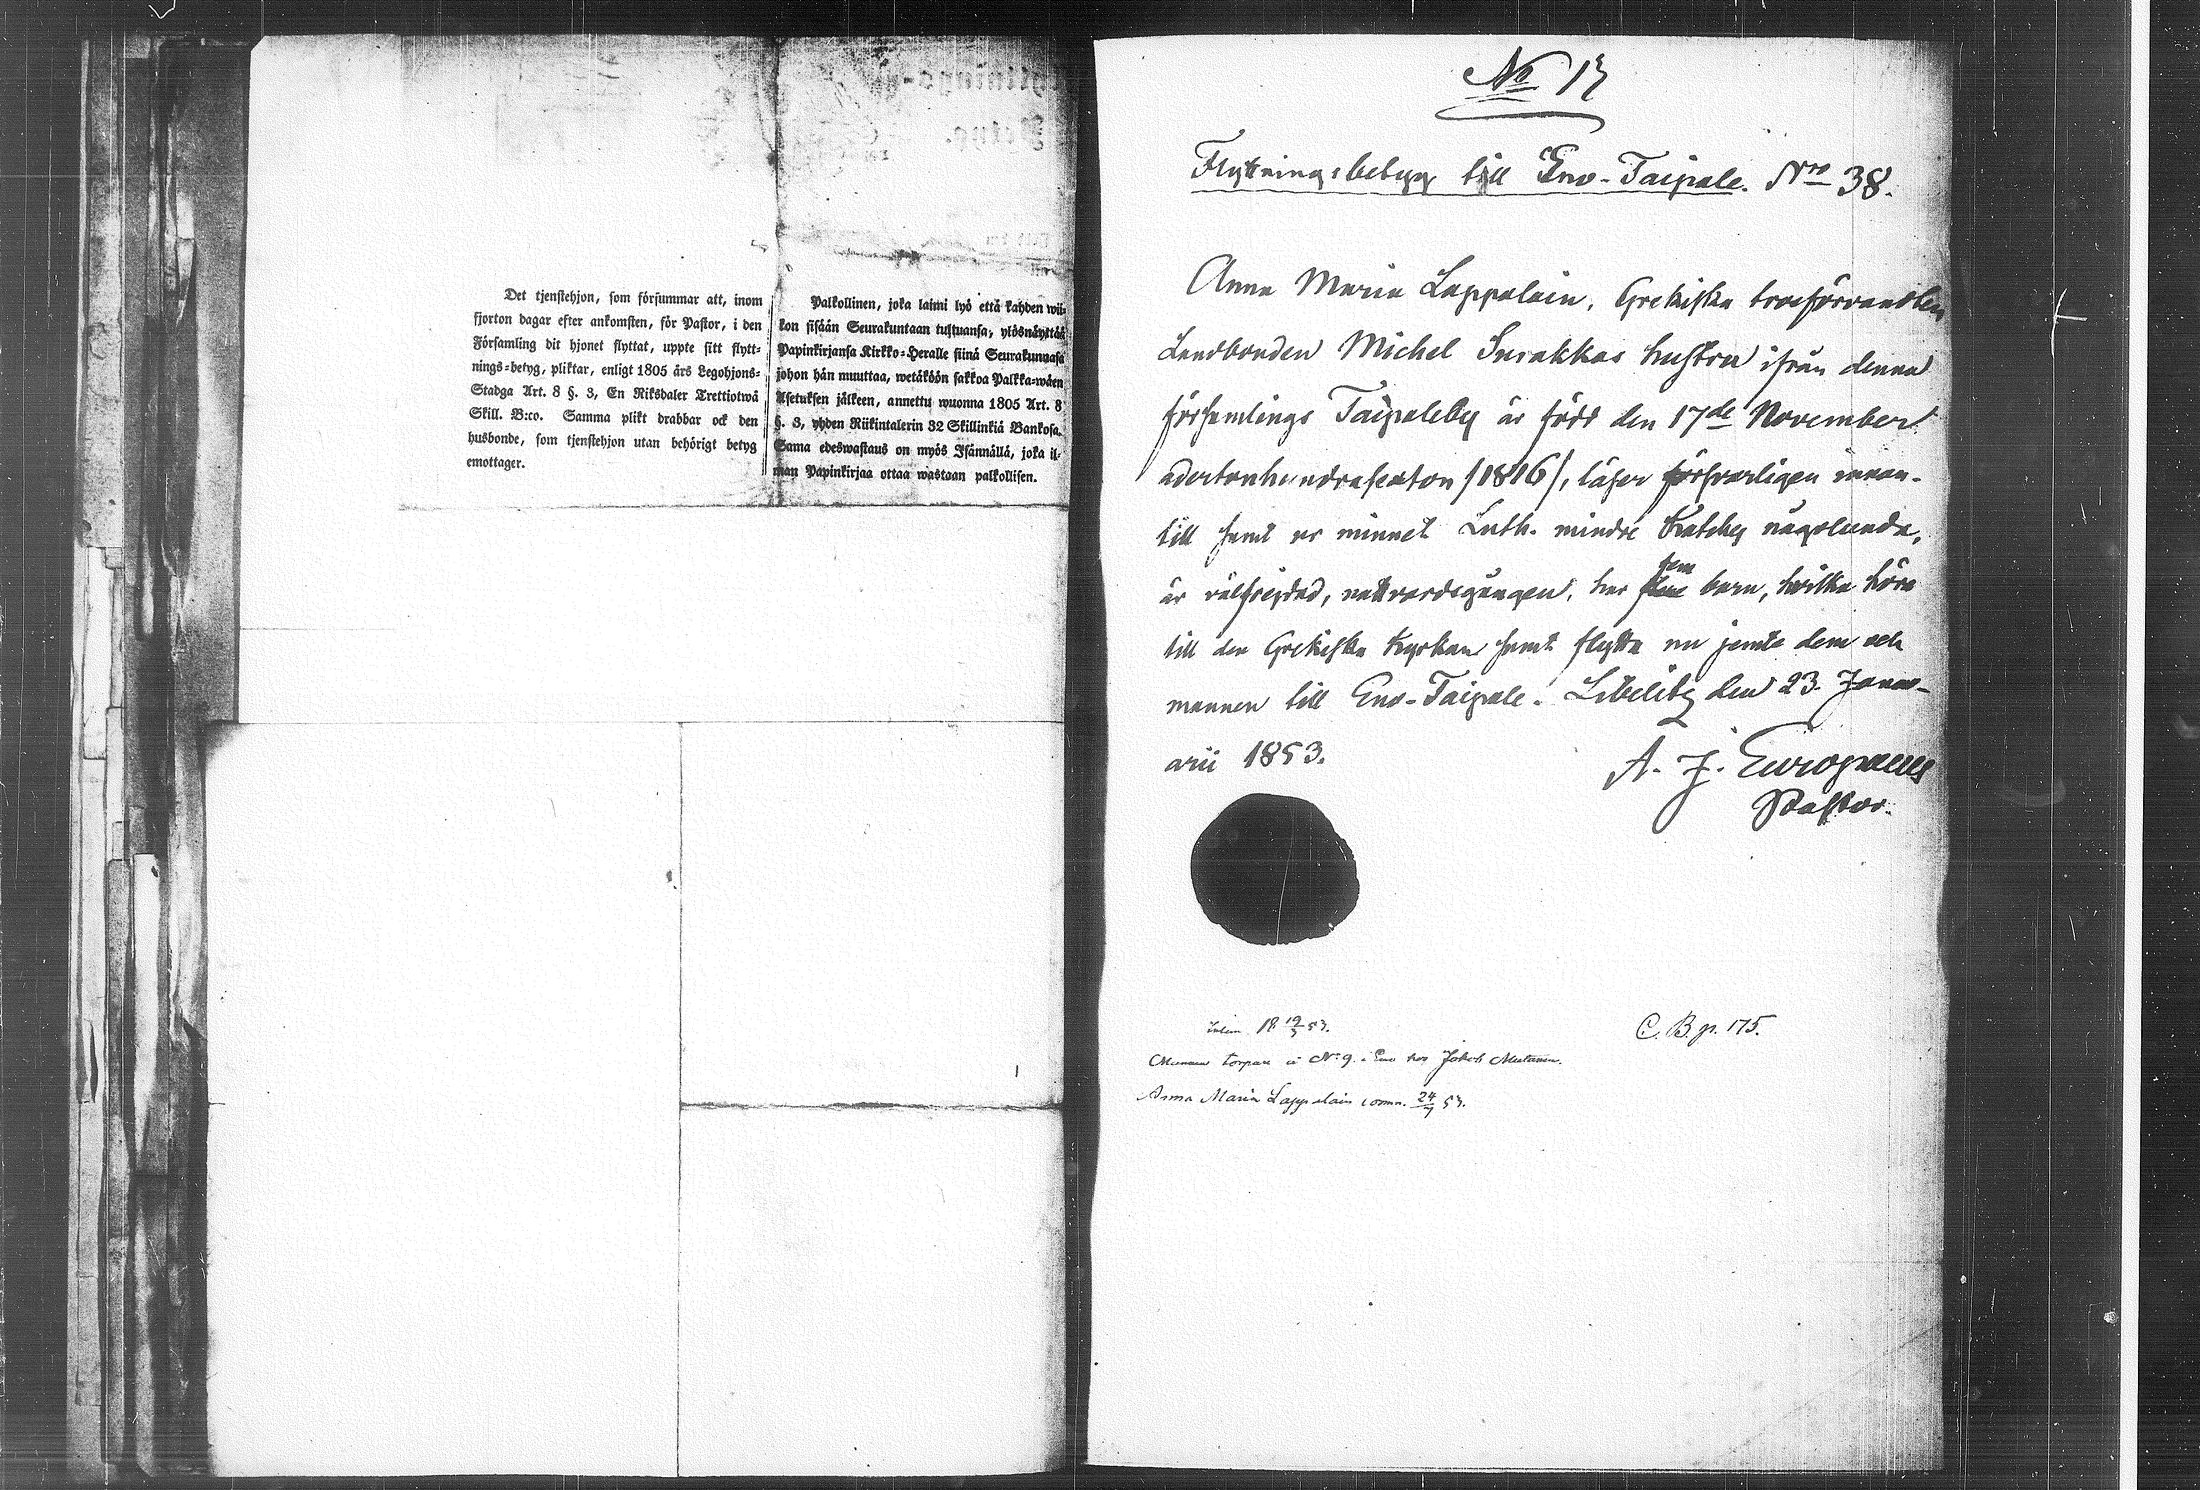 Det tjenstehjon, som försummar att, inom
fjorton dagar efter ankomsten, för Pastor, i den
Församling dit hjonet flyttat, uppte sitt flytt-
nings-betyg, pliktar, enligt 1805 års Legohjons-
Stadga Art. 8 §. 3, En Riksdaler Trettiotwå
Skill. B:co. Samma plikt drabbar ock den
husbonde, som tjenstehjon utan behörigt betyg
emottager.
Palkollinen, joka laimi lyö että kahden wii-
kon sisään Seurakuntaan tultuansa, ylösnäyttää
Papinkirjansa Kirkko-Heralle siinä Seurakunnasa
johon hän muuttaa, wetäköön sakkoa Palkka-wäen
Asetuksen jälkeen, annettu wuonna 1805 Art. 8
§. 3, yhden Riikintalerin 32 Skillinkiä Bankosa.
Sama edeswastaus on myös Isännällä, joka il-
man Papinkirjaa ottaa wastaan palkollisen.
No 13
Flyttningsbetyg till Eno-Taipale. Nro 38.
Anna Maria Lappalain, Grekiska trosförvandten
Landbonden Michel Surakkas hustru ifrån denna
församlings Taipaleby är född den 17de November
adertonhundrasexton /1816/, läser försvarligen innan-
till samt ur minnet Luth. mindre Kateches någolunda,
är välfrejdad, nattvardsgången, har fem barn, hvilka höra
till den Grekiska Kyrkan samt flytta nu jemte dem och
mannen till Eno-Taipale. Libelitz den 23. Janu-
arii 1853.
A. J. Europaeus
Pastor.
18 19/3 53.
C. B. p. 175.
Mannen torpare å No 9. i Eno hos Jakob Mutanen.
Anna Maria Lappalain comm. 24/7 53.